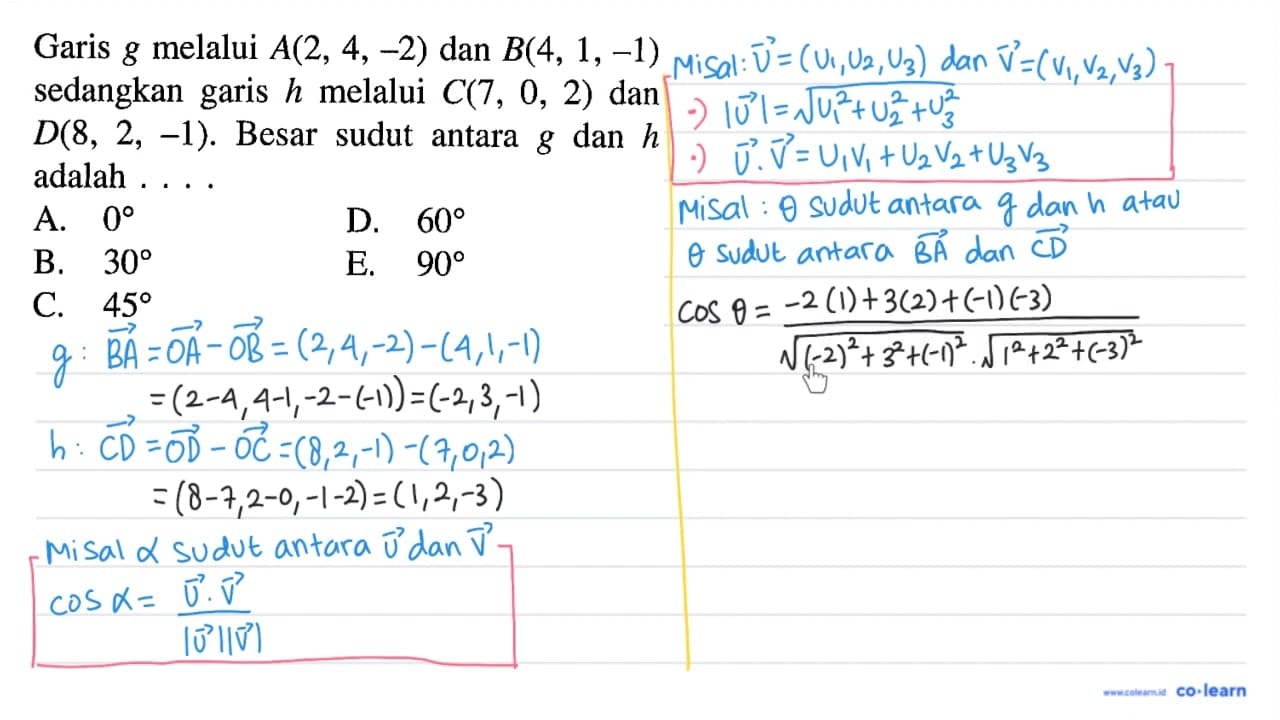 Garis g melalui A(2, 4, –2) dan B(4, 1, –1)
sedangkan garis h melalui C(7, 0, 2) dan
D(8, 2, –1). Besar sudut antara g dan h
adalah . . . .
A. 0° D. 60°
B. 30° E. 90°
C. 45°
g : BA⃗ = OA⃗ - OB⃗ = (2,4,-2)-(4,1,-1)
= (2-4, 4-1, -2-(-1)) = (-2,3,-1)
h : CD⃗ = OD⃗ - OC⃗ = (8,2,-1)-(7,0,2)
= (8-7, 2-0, -1-2) = (1,2,-3)
Misal α sudut antara U⃗ dan V⃗
cos α = U⃗ . V⃗ / |U⃗||V⃗|
Misal: U⃗ = (U₁,U₂,U₃) dan V⃗ = (V₁,V₂,V₃)
·) |U⃗| = √(U₁² + U₂² + U₃²)
·) U⃗ . V⃗ = U₁V₁ + U₂V₂ + U₃V₃
Misal : θ sudut antara g dan h atau
θ sudut antara BA⃗ dan CD⃗
cos θ = -2(1)+3(2)+(-1)(-3) / √((-2)²+3²+(-1)²) . √(1²+2²+(-3)²)
www.colearn.id co·learn